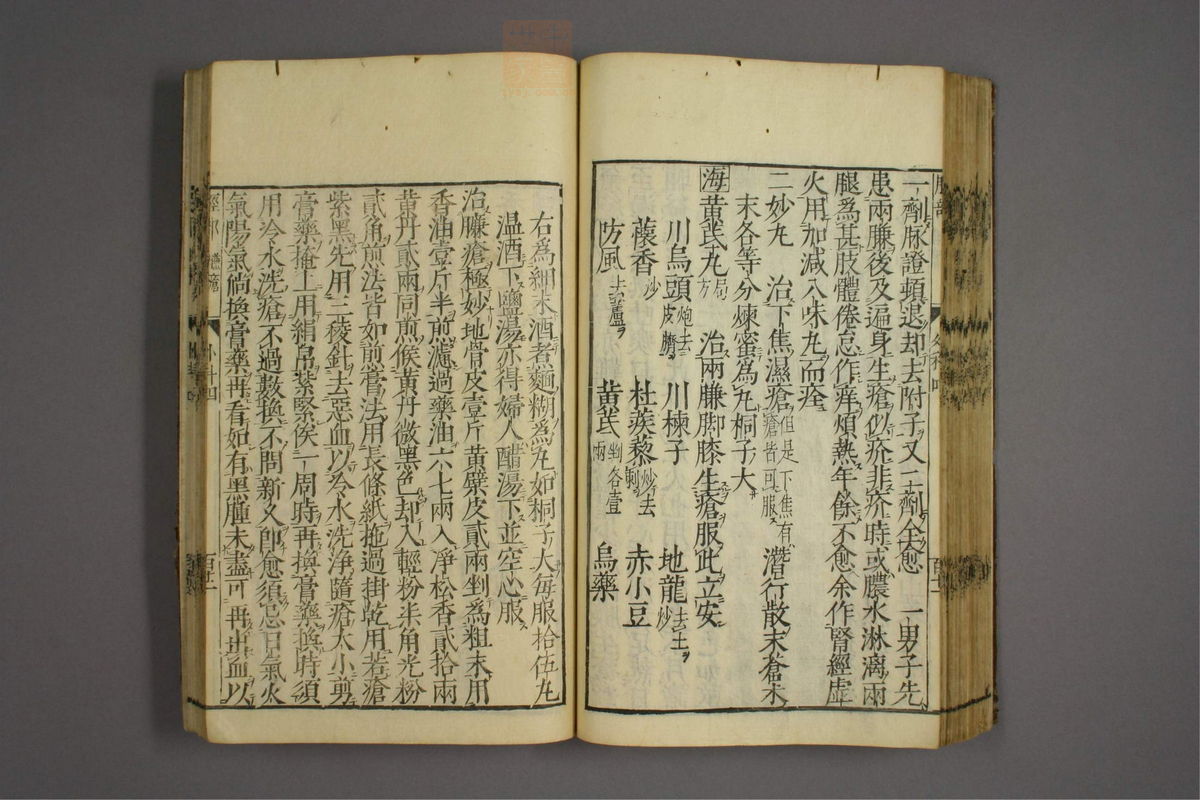 一劑脉證頓退却去附子又二劑全愈　一男子先
患兩臁後及遍身生瘡似疥非疥時或膿水淋漓兩
腿爲甚肢體倦怠作痒煩熱年餘不愈余作腎經虛
火用加減八味丸而痊
二妙丸　治下焦濕瘡但是下焦有瘡皆可服　潛行散末蒼朮
末各等分煉蜜爲丸桐子大
海黄芪丸局方　治兩臁脚膝生瘡服此立安
川烏頭炮去皮臍　川楝子　地龍去土炒
蘹香炒　杜蒺藜炒去刺　赤小豆
防風去蘆　黄芪剉各壹兩　烏藥
右爲細末酒煮麵糊爲丸如桐子大每服拾伍丸
温酒下鹽湯亦得婦人醋湯下並空心服
治臁瘡極妙地骨皮壹斤黄蘗皮貳兩剉爲粗末用
香油壹斤半煎濾過藥油六七兩入凈松香貳拾兩
黄丹貳兩同煎候黄丹微黑色却入輕粉半角光粉
貳角煎法皆如煎膏法用長條紙拖過掛乾用若瘡
紫黑先用三稜針去惡血以冷水洗净隨瘡大小剪
膏藥掩上用絹帛紥緊俟一周時再換膏藥換時須
用冷水洗瘡不過數換不問新久即愈須忌日氣火
氣陽氣倘換膏藥再看如有黑腫未盡可再出血以